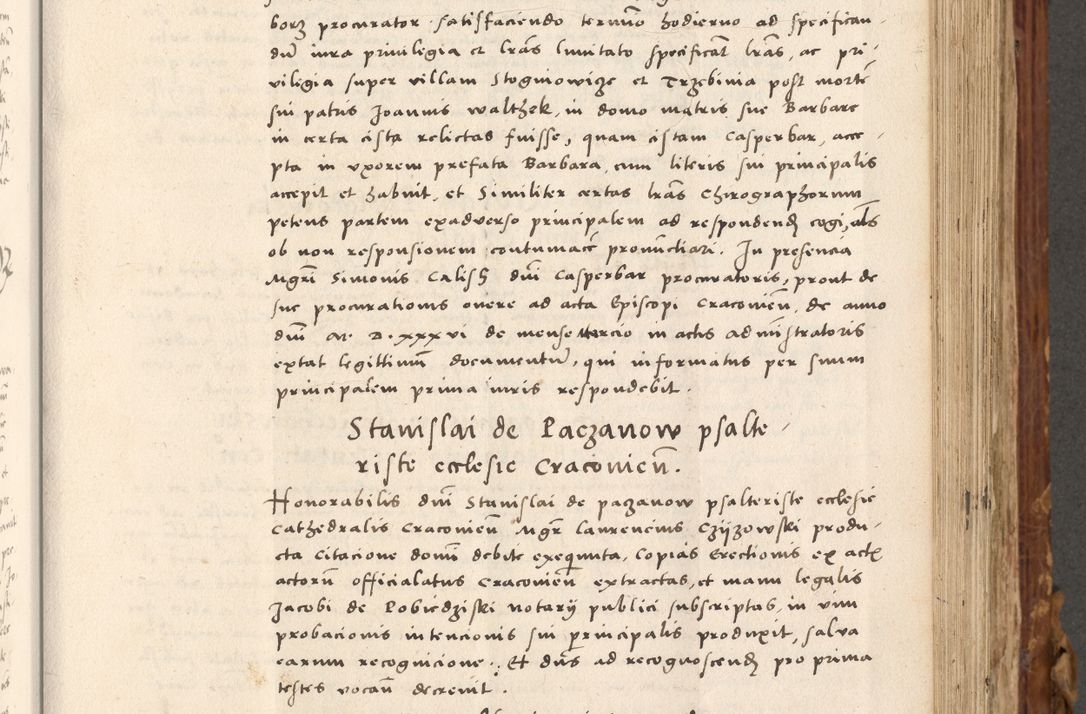 borz procurator satisfaciendo termino hodierno ad specifican-
dū iura priviligia et lrās limitato specificat lrās, ac pri-
vilegia super villam Stogniowize et Trzebinia post mortē
sui patris Joannis walthek, in domo matris sue Barbare
in certa cista relictas fuisse, quam cistam Casperbar, acce-
pta in uxorem prefata Barbara, cum literis sui principalis
accepit et habuit, et Similiter certas lrās Chirographorum
petens partem exadverso principalem ad respondend cogi, als
ob non responsionem contumacē pronūctiari. In presencia
Mgrī Simonis Calish dnī Casperbar procuratoris, prout de
sue procurationis onere ad acta Episcopi Craconien̄, de anno
dnī M. D. xxxvi de mense Marcio in actis administratoris
extat legittimū documentū, qui informatus per suum
principalem prima iuris respondebit.
Stanislai de Paczanow psalte-
riste ecclesie Craconien̄.
Honorabilis dnī Stanislai de paczanow psalteriste ecclesie
Cathedralis Craconien̄ Mgr̄ Laurencius Czijzowski produ-
cta Citacione domī debite exequuta, Copias Erectionis ex act
actorū officialatus Craconien̄ extractas, et manu legalis
Jacobi de Pobiedziski notarij publici subscriptas, in vim
probacionis intencionis sui principalis produxit, salva
earum recognicione. Et dns ad recognoscend pro prima
testes vocan̄ decrevit.